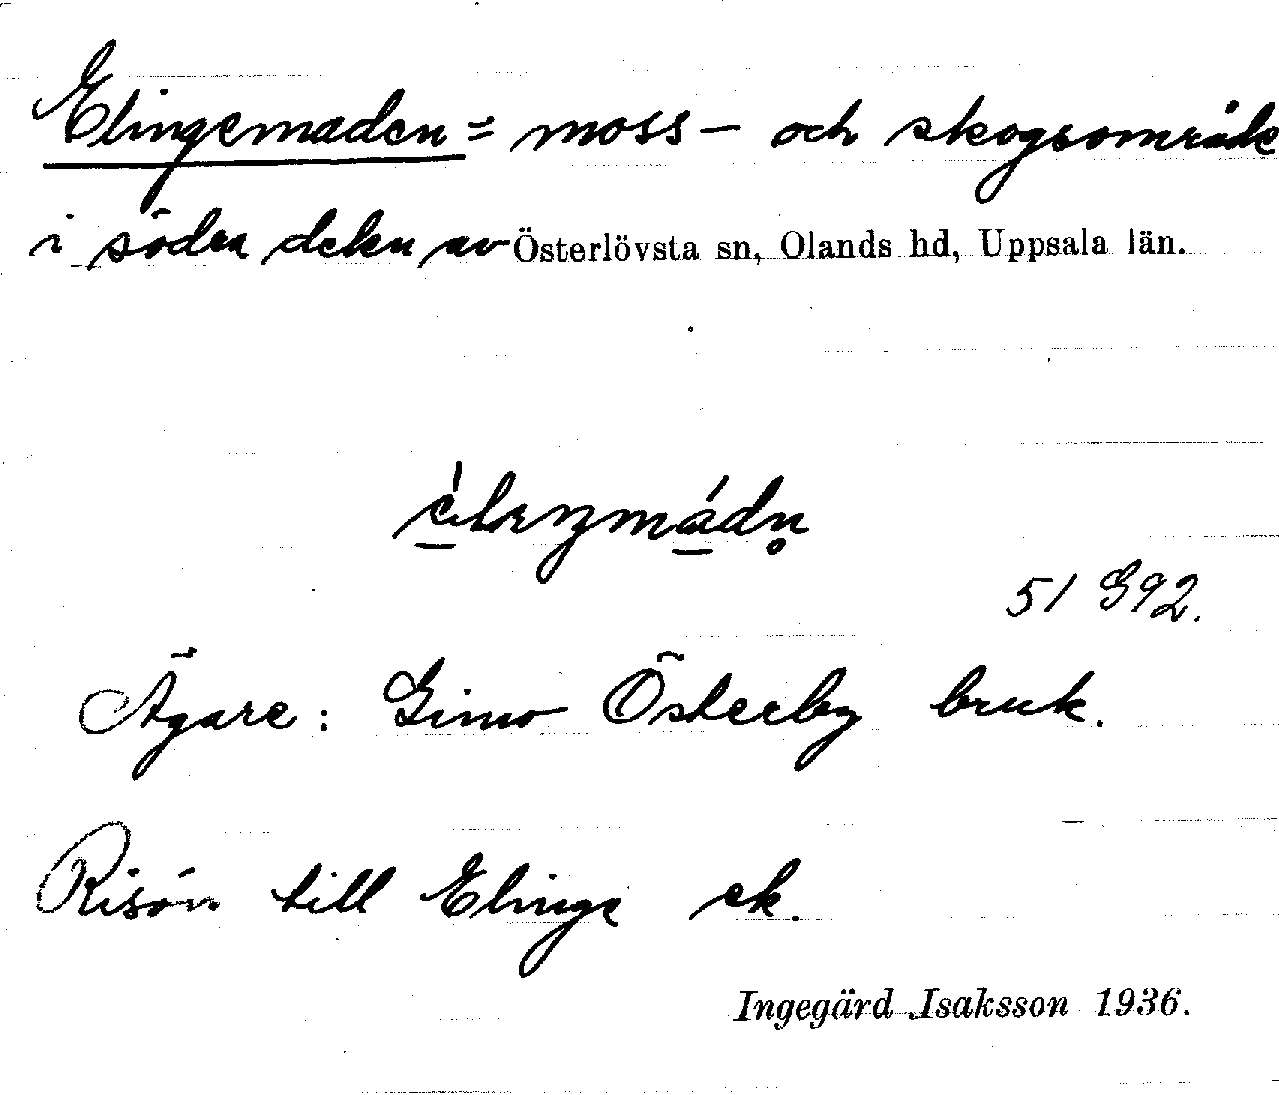 Elingemaden = moss- och skogsområde
i södra delen av Österlövsta sn, Olands hd, Uppsala län.
51 G92.
Ägare: Gimo Österby bruk.
till Elinge ek.
Ingegärd Isaksson 1936.